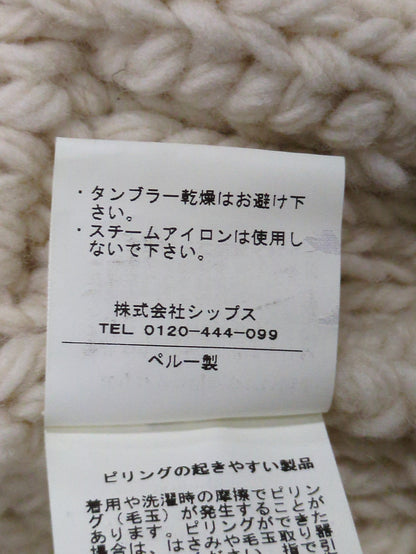 ・タンブラー乾燥はお避け下
さい。
・スチームアイロンは使用し
ないで下さい。
株式会社シップス
TEL 0120-444-099
ペルー製
ピリングの起きやすい製品
着用や洗濯時の摩擦でピリン
グ（毛玉）が発生することが
あります。ピリングができた
場合は、はさみや毛玉取り器